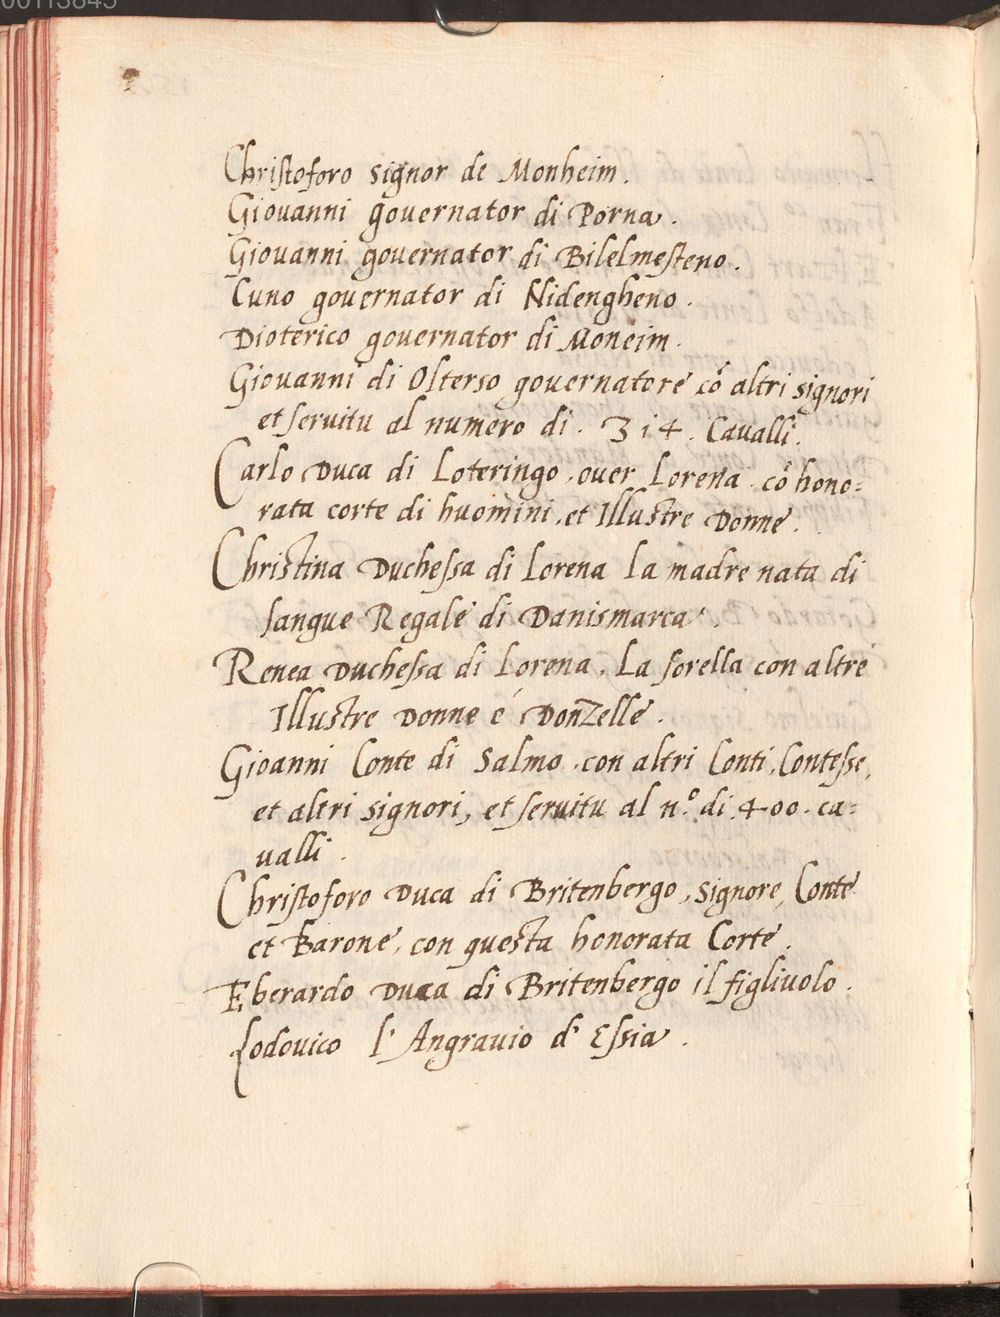 00113845
Christoforo signor de Monheim.
Giouanni gouernator di Porna.
Giouanni gouernator di Bilelmesteno.
Cuno gouernator di Nidengheno.
Dioterico gouernator di Moneim.
Giouanni di Olterso gouernatore cõ altri signori
et seruitu al numero di. 314. Caualli.
Carlo Duca di Loteringo, ouer Lorena cõ hono=
rata corte di huomini, et Illustre Donne.
Christina Duchessa di Lorena La madre nata di
sangue Regale di Danismarca.
Renea Duchessa di Lorena, La sorella con altre
Illustre Donne é Donzelle.
Gioanni Conte di Salmo, con altri Conti, Contesse,
et altri signori, et seruitu al n.º di. 400. ca=
ualli.
Christoforo Duca di Britenbergo, signore, Conte
et Barone, con questa honorata Corte.
Eberardo Duca di Britenbergo il figliuolo.
Lodouico l'Angrauio d'Essia.